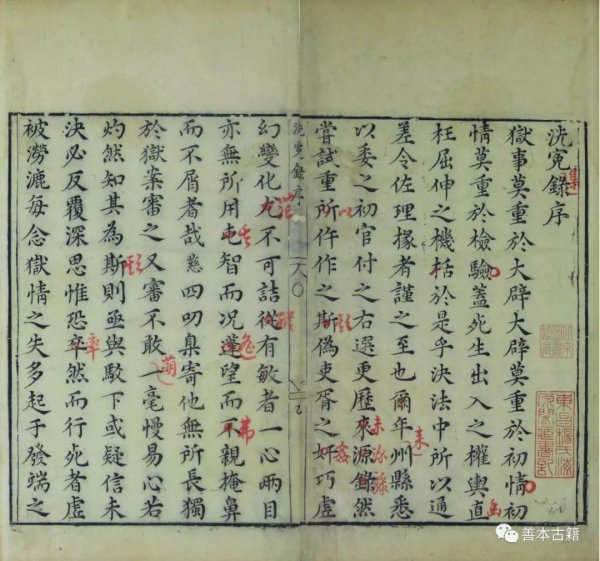 洗冤錄序
集
獄事莫重於大辟大辟莫重於初情初
情莫重於檢驗蓋死生出入之權輿直
枉屈伸之機括於是乎決法中所以通
差令佐理掾者謹之至也爾年州縣悉
以委之初官付之右選更歷來源錄然
嘗試重所仵作之斯偽吏胥之奸巧虛
以
洗冤錄序
幻變化尤不可詰從有敏者一心兩目
亦無所用屯智而况蓬望而不親掩鼻
而不屑者哉慈四叨臬寄他無所長獨
於獄案審之又審不敢一毫慢易心若
萌
灼然知其為斯則亟與駁下或疑信未
決必反覆深思惟恐卒然而行死者虛
被澇漉每念獄情之失多起于發端之
善本古籍